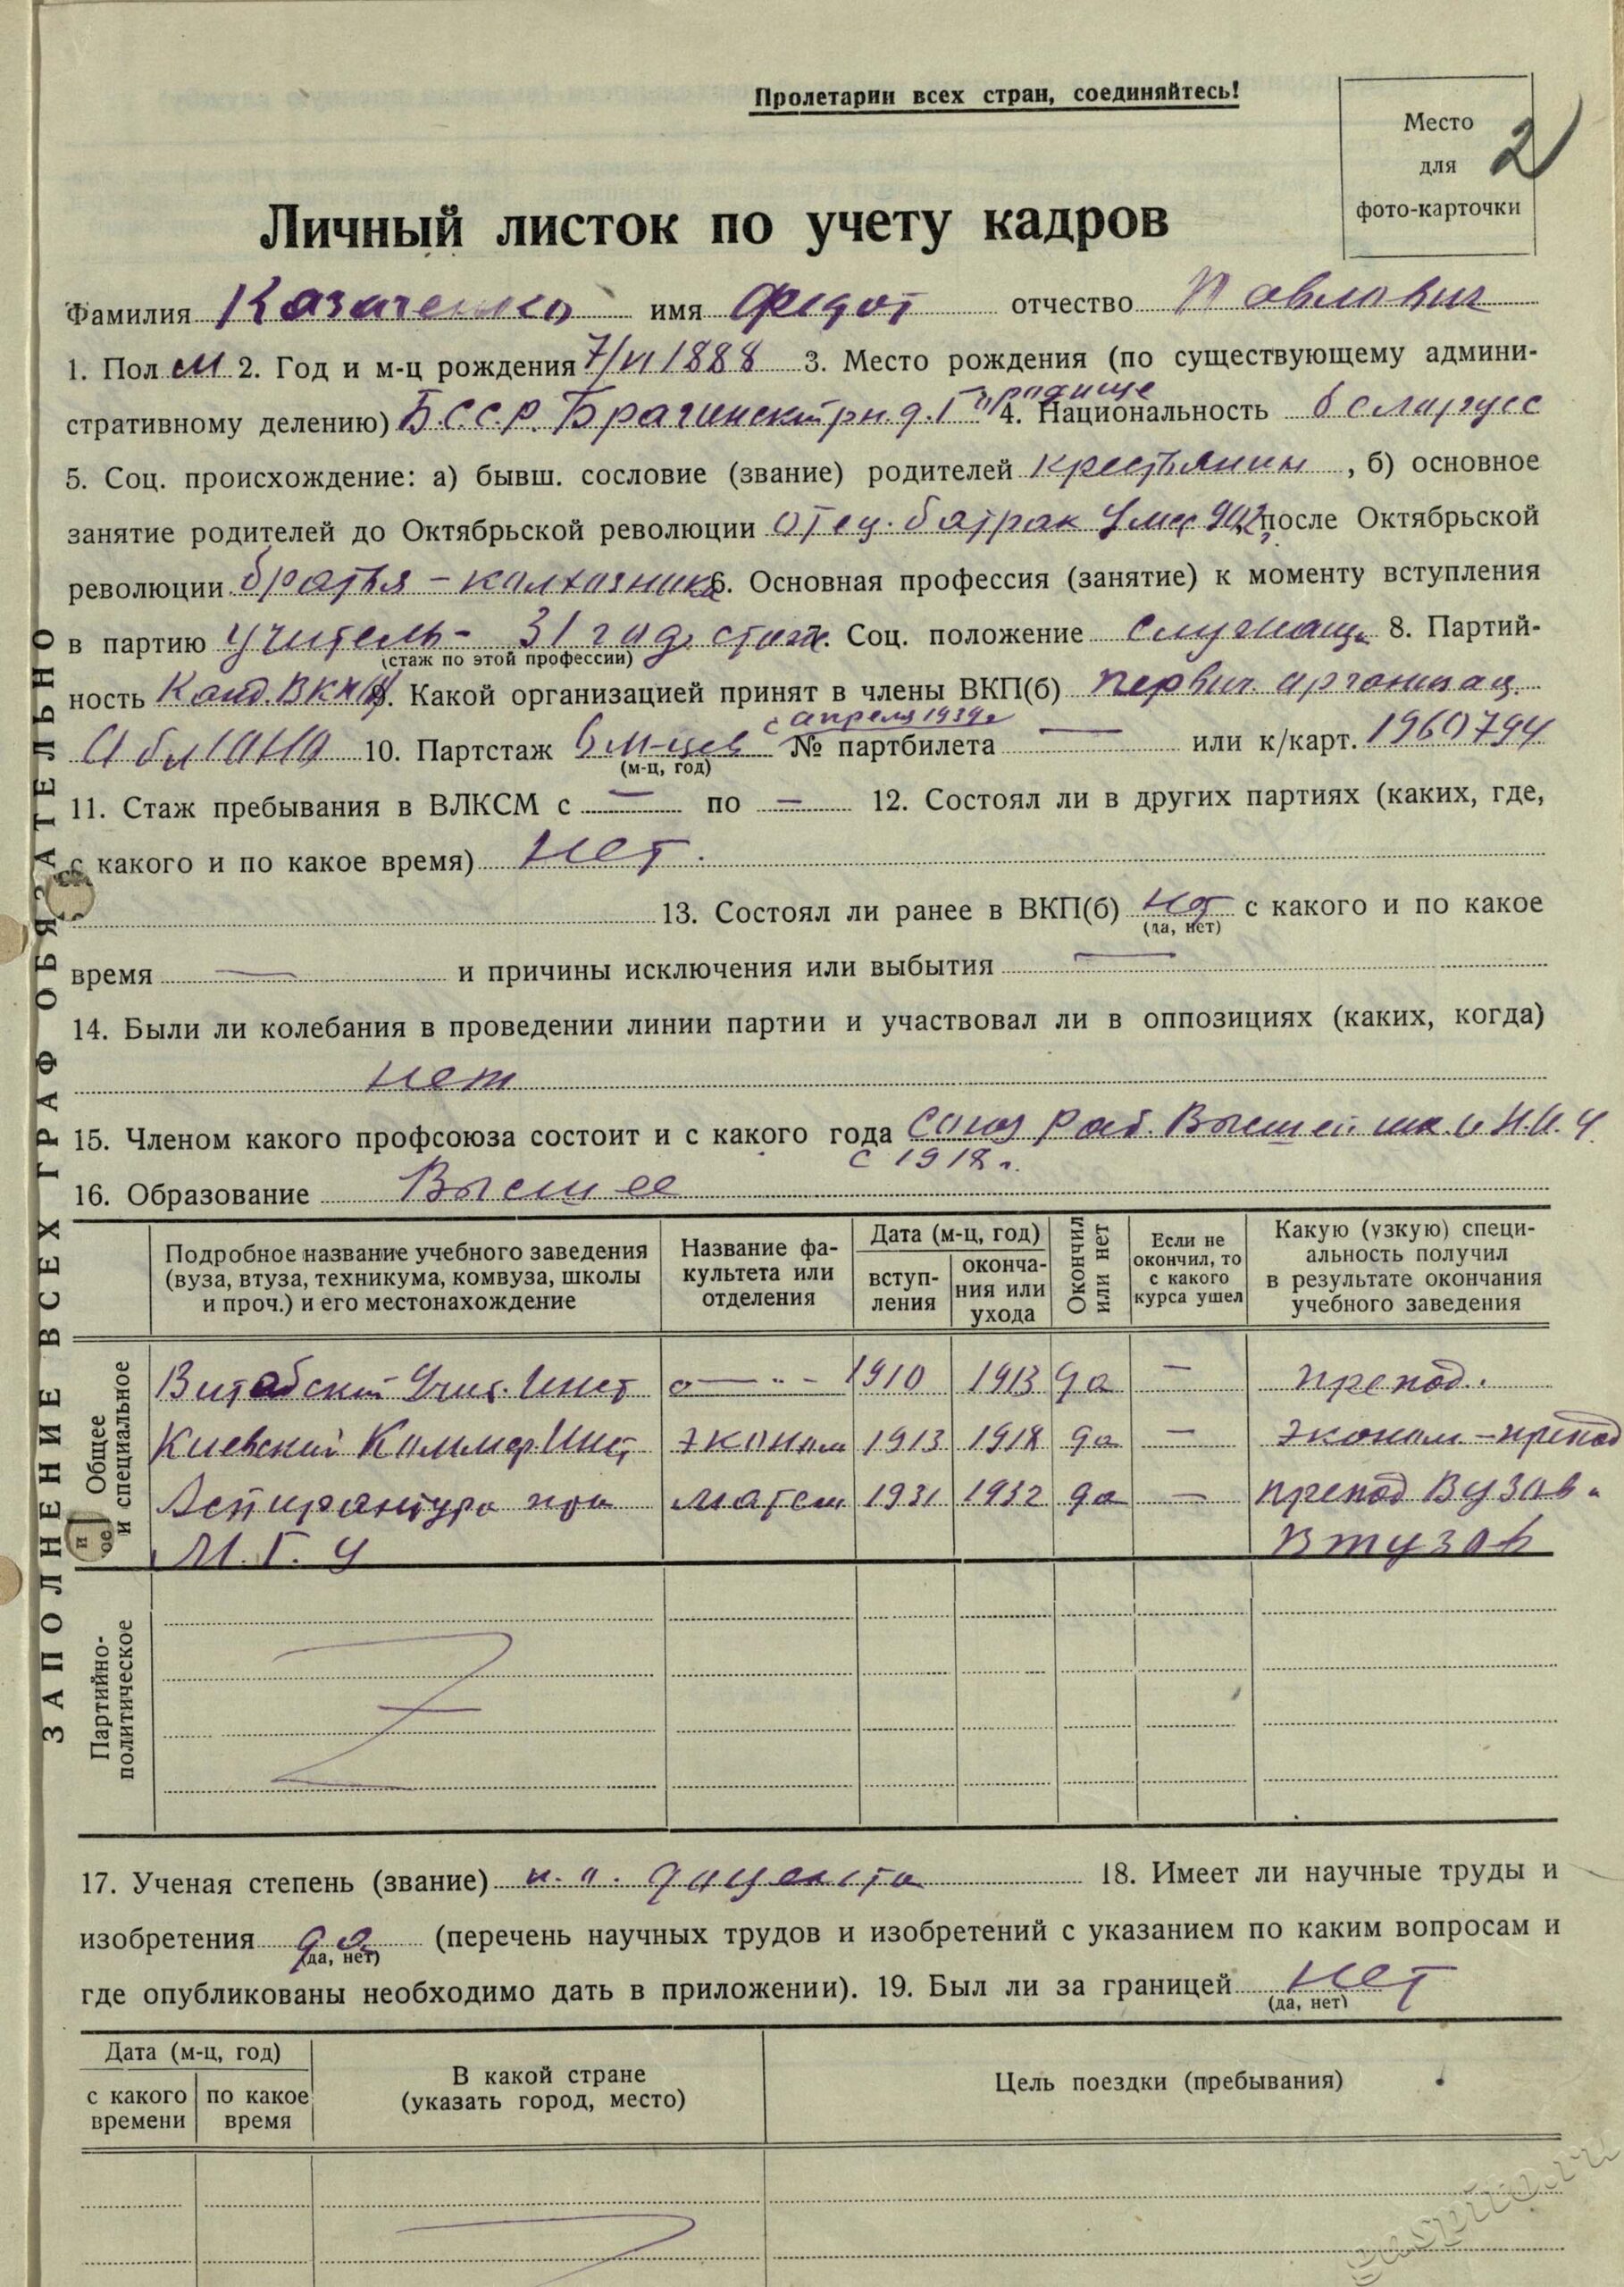 Пролетарии всех стран, соединяйтесь!
Место
для
фото-карточки
2
Личный листок по учету кадров
Фамилия Казаченко имя Федот отчество Павлович
1. Пол м 2. Год и м-ц рождения 7/VI 1888 3. Место рождения (по существующему админи-
стративному делению) Б.С.С.Р. Брагинский рн. д. Городище 4. Национальность беларусс
5. Соц. происхождение: а) бывш. сословие (звание) родителей крестьянин, б) основное
занятие родителей до Октябрьской революции отец. батрак умер 902, после Октябрьской
революции братья - колхозники 6. Основная профессия (занятие) к моменту вступления
в партию учитель - 31 год стаж. Соц. положение служащ. 8. Партий-
(стаж по этой профессии)
ность Канд. ВКП(б) 9. Какой организацией принят в члены ВКП(б) первич. организац.
10. Партстаж 6 м-цев с апреля 1939г № партбилета — или к/карт. 1960794
(м-ц, год)
11. Стаж пребывания в ВЛКСМ с — по — 12. Состоял ли в других партиях (каких, где,
с какого и по какое время) Нет.
13. Состоял ли ранее в ВКП(б) нет с какого и по какое
(да, нет)
время — и причины исключения или выбытия —
14. Были ли колебания в проведении линии партии и участвовал ли в оппозициях (каких, когда)
нет
15. Членом какого профсоюза состоит и с какого года Союз Раб. Высшей шк. и Н.И.У.
с 1918 г.
16. Образование Высшее
Подробное название учебного заведения
(вуза, втуза, техникума, комвуза, школы
и проч.) и его местонахождение
Название фа-
культета или
отделения
Дата (м-ц, год)
вступ-
ления
оконча-
ния или
ухода
Окончил
или нет
Если не
окончил, то
с какого
курса ушел
Какую (узкую) специ-
альность получил
в результате окончания
учебного заведения
Общее
и специальное
Витебский Учит. Инст — 1910 1913 да — препод.
Киевский Коммер Инст эконом 1913 1918 да — эконом.-препод
Аспирантура при матем 1931 1932 да — препод Вузов и
М.Г.У Втузов
Партийно-
политическое
17. Ученая степень (звание) и.о. доцента 18. Имеет ли научные труды и
изобретения да (перечень научных трудов и изобретений с указанием по каким вопросам и
(да, нет)
где опубликованы необходимо дать в приложении). 19. Был ли за границей нет
(да, нет)
Дата (м-ц, год)
с какого
времени
по какое
время
В какой стране
(указать город, место)
Цель поездки (пребывания)
ЗАПОЛНЕНИЕ ВСЕХ ГРАФ ОБЯЗАТЕЛЬНО
gaspito.ru